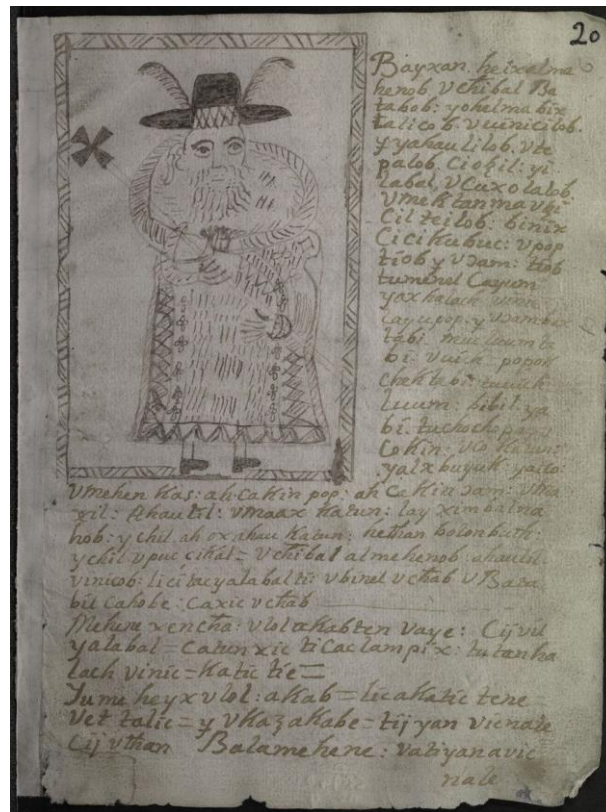 20
Bayxan. heix alma
henob. Vchibal Ba
tabob: yohelma bix
talicob. vuinicilob.
y yahaulilob. vte
palob. Ciokil: yi
labal, VCuxolalob
Vmektanma vbi
Cil teilob. binix
Cicikubuc: vpop
tiob y vɔam: tiob
tumenel Cayum
yax halach vinic
cayupop. y vɔam bix
tabi
bi. vuich. popoh
chektabi: tuuich
luum: bibil. ya
bi: tuchochopay
Cokin: vlo katun:
yalx buyuk: yailo:
Vmehen kas: ah Cakin pop: ah Cakin ɔam: vma
xil: Ahaulil: vmaax katun: lay ximbalna
hob: ychil. ah ox ahau katun: hethan bolonbuth:
ychil vpuc cikal = vchibal almehenob. ahaulil.
vinicob: licitacyalabalti: vbinel vchab vBata
bil Cahobe: Caxic vchab
Mehene xencha: vlol akabten vaye: Cij vil
yalabal = Catunxic ticaclampix: tu tan ha
lach vinic = katic tie =
Yume heyx vlol: akab = licakatic tene =
vet talic = y vkazakabe = tij yan vicnale
Cij vthan Balamehene: vatiyanavic
nale